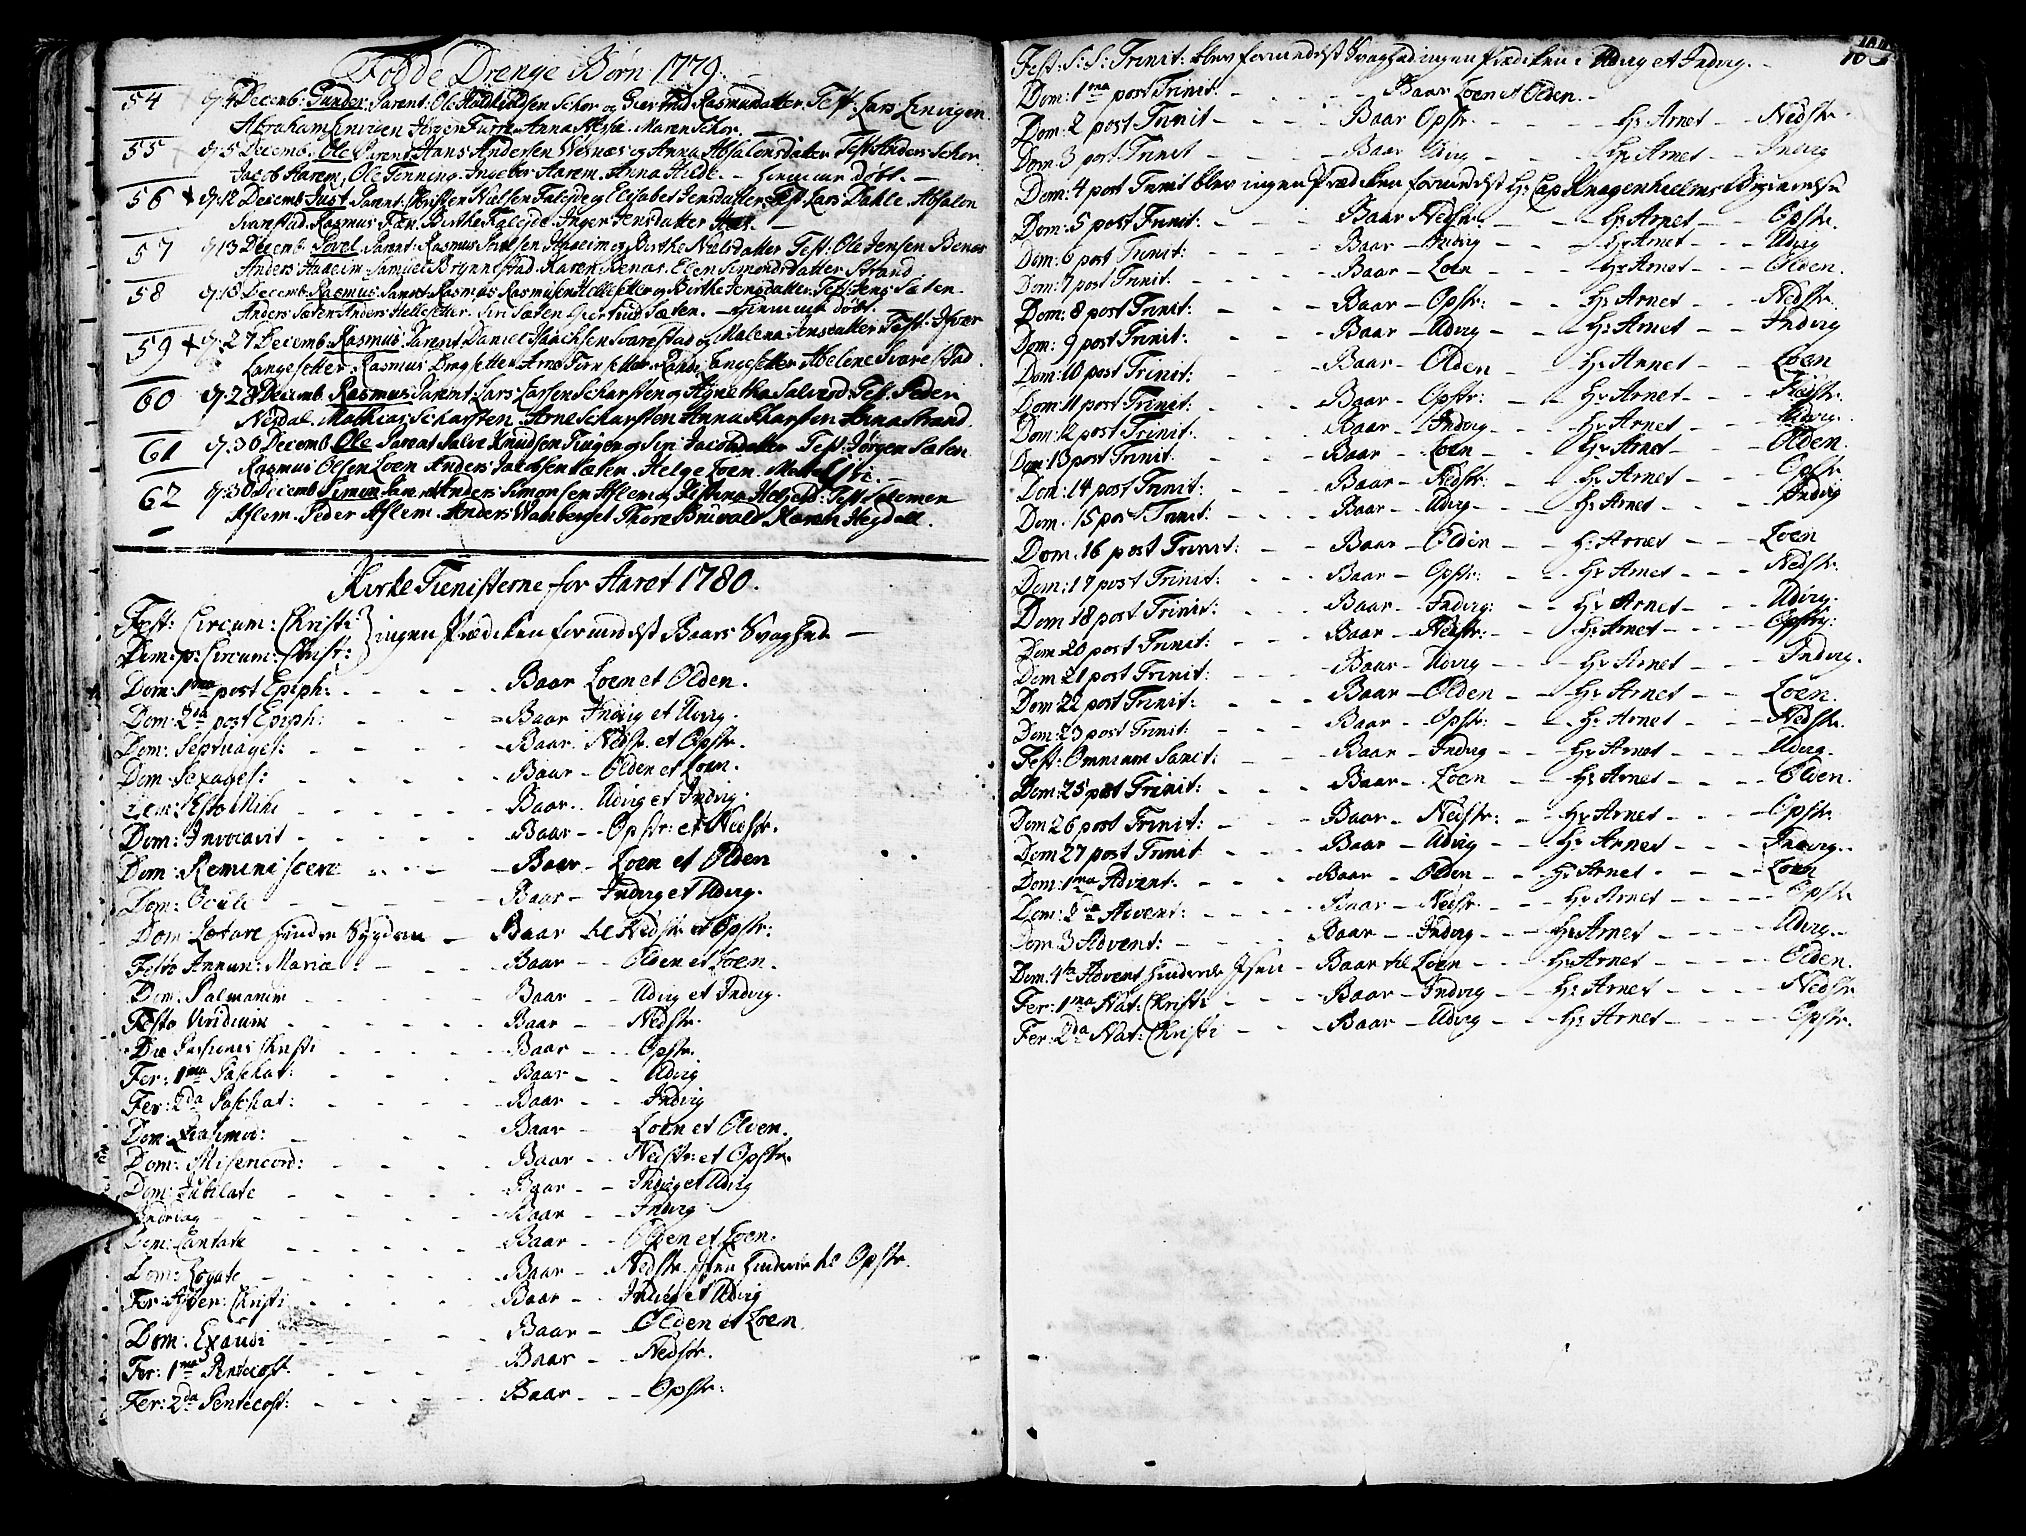 Fødde Drenge Børn 1779.
54 d. 4 Decemb: Gunder. Parent: Ole Schor og Giertrud Rasmusdatter. Test: Lars Linvigen
Abraham Linvien Jørgen Furre Anna Maren Schor.
55 d. 5 Decemb. Ole Parent. Hans Andersen Wesnæs og Anna Absalonsdatter Test. Anders Schor
Jacob Harem, Ole Tenning Ingebor Harem, Anna Hilde. — hiemme døbt. —
56 d. 12 Decemb. Just Parent. Christen Nielsen Faleyde og Elisabet Jensdatter. Test. Lars Dahle. Absalon
Svarestad. Rasmus Birthe Faleyde. Inger Jensdatter
57 d. 13 Decemb. Povel. Parent: Rasmus Haaeim og Birthe Nielsdatter. Test: Ole Jensen Benæs
Anders Haaeim Samuel Brynnestad. Karen Benæs. Elen Simonsdatter Strand.
58 d. 18 Decemb. Rasmus. Parent. Rasmus Rasmusen Hellesetter og Birthe Jensdatter. Test: Jens Sæten.
Anders Sæten Anders Hellesetter. Siri Sæten. Giertrud Sæten. — hiemme døbt.
59 d. 27 Decemb. Rasmus. Parent. Daniel Svarestad og Malena Jensdatter Test: Iver
Langesetter. Rasmus Langesetter Abelene Svarestad.
60 d. 28 Decemb. Rasmus Parent. Lars Larsen Scharsten og Agnetha Test. Peder
Nesdal. Mathias Scharsten. Arne Scharsten Anna Scharsten Anna Strand.
61 d. 30 Decemb. Ole Parent Salve Knudsen Tiugen og Siri Jacobsdatter Test: Jørgen Sæten
Rasmus Olsen Loen Anders Jacobsen Sæten. Helge Loen.
62 d. 30 Decemb Simon Parent Anders Simonsen Aslem og Test Salemon
Aslem. Peder Aslem. Anders Thore Karen Hegdal.
Kirke Tienisterne for Aaret 1780.
Fest: Circum: Christi
Dom: p: Circum: Christ: } ingen Prædiken formedelst Baars Svaghed —
Dom: 1ma post Epiph: - - - - Baar Loen et Olden.
Dom: 2da post Epiph: - - - - Baar Indvig et Udvig.
Dom: Septuages: - - - - Baar. Nedstr. et Opstr.
Dom: Sexages: - - - - Baar - Olden et Loen.
Dom: Esto Mihi - - - - Baar. Udvig et Indvig.
Dom: Invocavit - - - - Baar - Opstr: et Nedstr.
Dom: Reminiscere - - - Baar - Loen et Olden
Dom: Oculi - - - - Baar - Indvig et Udvig.
Dom: Lætare - Baar til Nedstr. et Opstr:
Festo Annun: Mariæ: - - - Baar - - Olden et Loen.
Dom. Palmarum - - - - Baar - - Udvig et Indvig.
Festo Viridium - - - - Baar - - Nedstr.
Die Passiones Christi - - - - Baar - - Opstr.
Fer: 1ma Paschat: - - - - Baar - - Udvig
Fer: 2da Paschat: - - - - Baar - - Indvig
Dom: Quasimod: - - - - Baar - - Loen et Olden.
Dom: Misericord: - - - - Baar - - Nedstr: et Opstr.
Dom: Jubilate - - - - Baar - - Indvig et Udvig
- - - - Baar - - Indvig
Dom: Cantate - - - - Baar - - Olden et Loen.
Dom: Rogate - - - - Baar - - Nedstr. Isen hinderte til Opstr.
Fer: Ascen: Christi - - - - Baar - - Indvig et Udvig
Dom: Exaudi - - - - Baar - Olden et Loen.
Fer: 1ma Pentecost. - - - - Baar - - Nedstr.
Fer: 2da Pentecost: - - - - Baar - - - Opstr:
Fest: S: S: Trinit: blev formedelst Svaghed ingen Prædiken i Udvig et Indvig. -
Dom: 1ma post Trinit. - - - - Baar Loen et Olden. -
Dom: 2 post Trinit - - - - Baar Opstr: - - Hr Arnet - - Nedstr.
Dom: 3 post Trinit - - - - Baar Udvig - - Hr Arnet - - Indvig
Dom: 4 post Trinit blev ingen Prædiken formedelst Hr: Cap: Knagenhielms Begravelse
Dom: 5 post Trinit: - - - Baar Nedstr: - - Hr. Arnet - - Opstr.
Dom: 6 post Trinit: - - - Baar - Indvig - - Hr Arnet - - Udvig
Dom: 7 post Trinit. - - - Baar - Loen - - Hr Arnet - - Olden.
Dom: 8 post Trinit: - - - Baar - Opstr: - - Hr Arnet - - Nedstr.
Dom: 9 post Trinit: - - - Baar - Udvig - - Hr Arnet - - Indvig
Dom: 10 post Trinit: - - - Baar - Olden - - Hr Arnet - - Loen
Dom: 11 post Trinit: - - - Baar - Opstr: - - Hr Arnet - - Nedstr.
Dom: 12 post Trinit. - - - Baar - Indvig - - Hr Arnet - - Udvig.
Dom: 13 post Trinit: - - - Baar - Loen - - Hr Arnet - - Olden
Dom: 14 post Trinit: - - - Baar - Nedstr: - - Hr Arnet - - Opstr
Dom: 15 post Trinit: - - - Baar - Udvig - - Hr Arnet - - Indvig
Dom: 16 post Trinit: - - - Baar - Olden - - Hr Arnet - - Loen
Dom: 17 post Trinit: - - - Baar - Opstr: - - Hr Arnet - - Nedstr.
Dom 18 post Trinit: - - - Baar - Indvig: - - Hr Arnet - - Udvig.
Dom 20 post Trinit: - - - Baar - Nedstr: - - Hr Arnet - - Opstr:
Dom 21 post Trinit: - - - Baar - Udvig - - Hr Arnet - - Indvig.
Dom 22 post Trinit: - - - Baar - Olden - - Hr Arnet - - Loen.
Dom: 23 post Trinit: - - - Baar - Opstr: - - Hr Arnet - - Nedstr.
Fest: Omnium Sanct: - - - Baar - Indvig - - Hr Arnet - - Udvig.
Dom: 25 post Trinit: - - - Baar - Loen - - Hr Arnet - - Olden.
Dom 26 post Trinit: - - - Baar - Nedstr: - - Hr Arnet - - Opstr.
Dom 27 post Trinit - - - Baar - Udvig - - Hr Arnet - - Indvig.
Dom: 1ma Advent: - - - Baar - Olden - - Hr Arnet - - Loen
Dom: 2da Advent: - - - Baar - Nedstr. - - Hr Arnet - - Opstr
Dom 3 Advent: - - - Baar - Indvig - - Hr Arnet - - Udvig.
Dom. 4ta Advent hinderte Isen - Baar til Loen - - Hr Arnet - - Olden.
Fer: 1ma Nat: Christi - - - Baar - Indvig - - Hr Arnet - - Nedstr
Fer: 2da Nat: Christi - - - Baar - Udvig - - Hr Arnet - - Opstr.